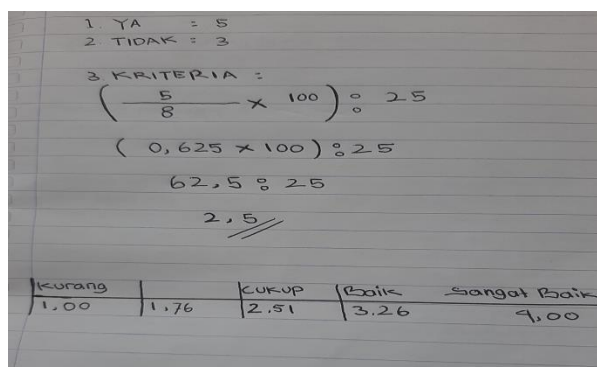 1. YA : 5
2. TIDAK : 3
3. KRITERIA :
( 5/8 × 100 ) : 25
( 0,625 × 100 ) : 25
62,5 : 25
2,5
Kurang CUKUP Baik Sangat Baik
1.00 1.76 2.51 3.26 4,00